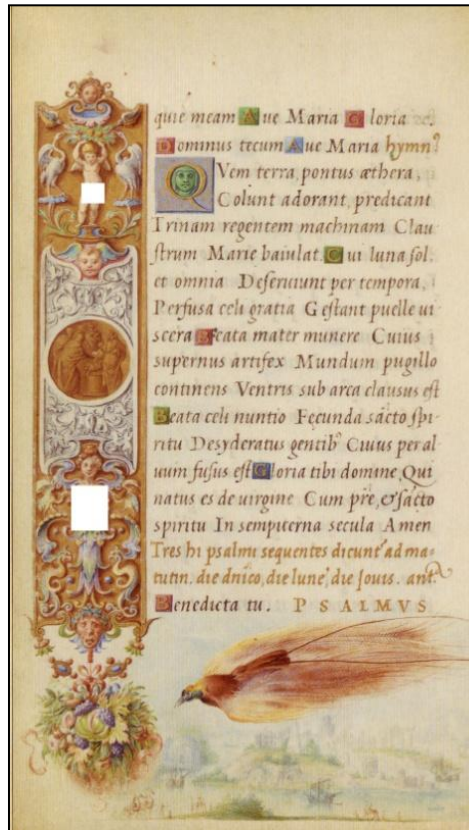 quie meam Aue Maria Gloria
Dominus tecum Aue Maria hymn⁹
Qvem terra, pontus æthera,
Colunt adorant, predicant
Trinam regentem machinam Clau
strum Marie baiulat. Cui luna sol.
et omnia Deseruiunt per tempora,
Perfusa celi gratia Gestant puelle ui
scera Beata mater munere Cuius
supernus artifex Mundum pugillo
continens Ventris sub arca clausus est
Beata celi nuntio Fęcunda sacto spi-
ritu Desyderatus gentib⁹ Cuius per al
uum fusus est Gloria tibi domine, Qui
natus es de uirgine Cum pre, & sacto
spiritu In sempiterna secula Amen
Tres hi psalmi sequentes dicunt' ad ma-
tutin. die dnico, die lune, die Iouis. ant.
Benedicta tu. PSALMVS